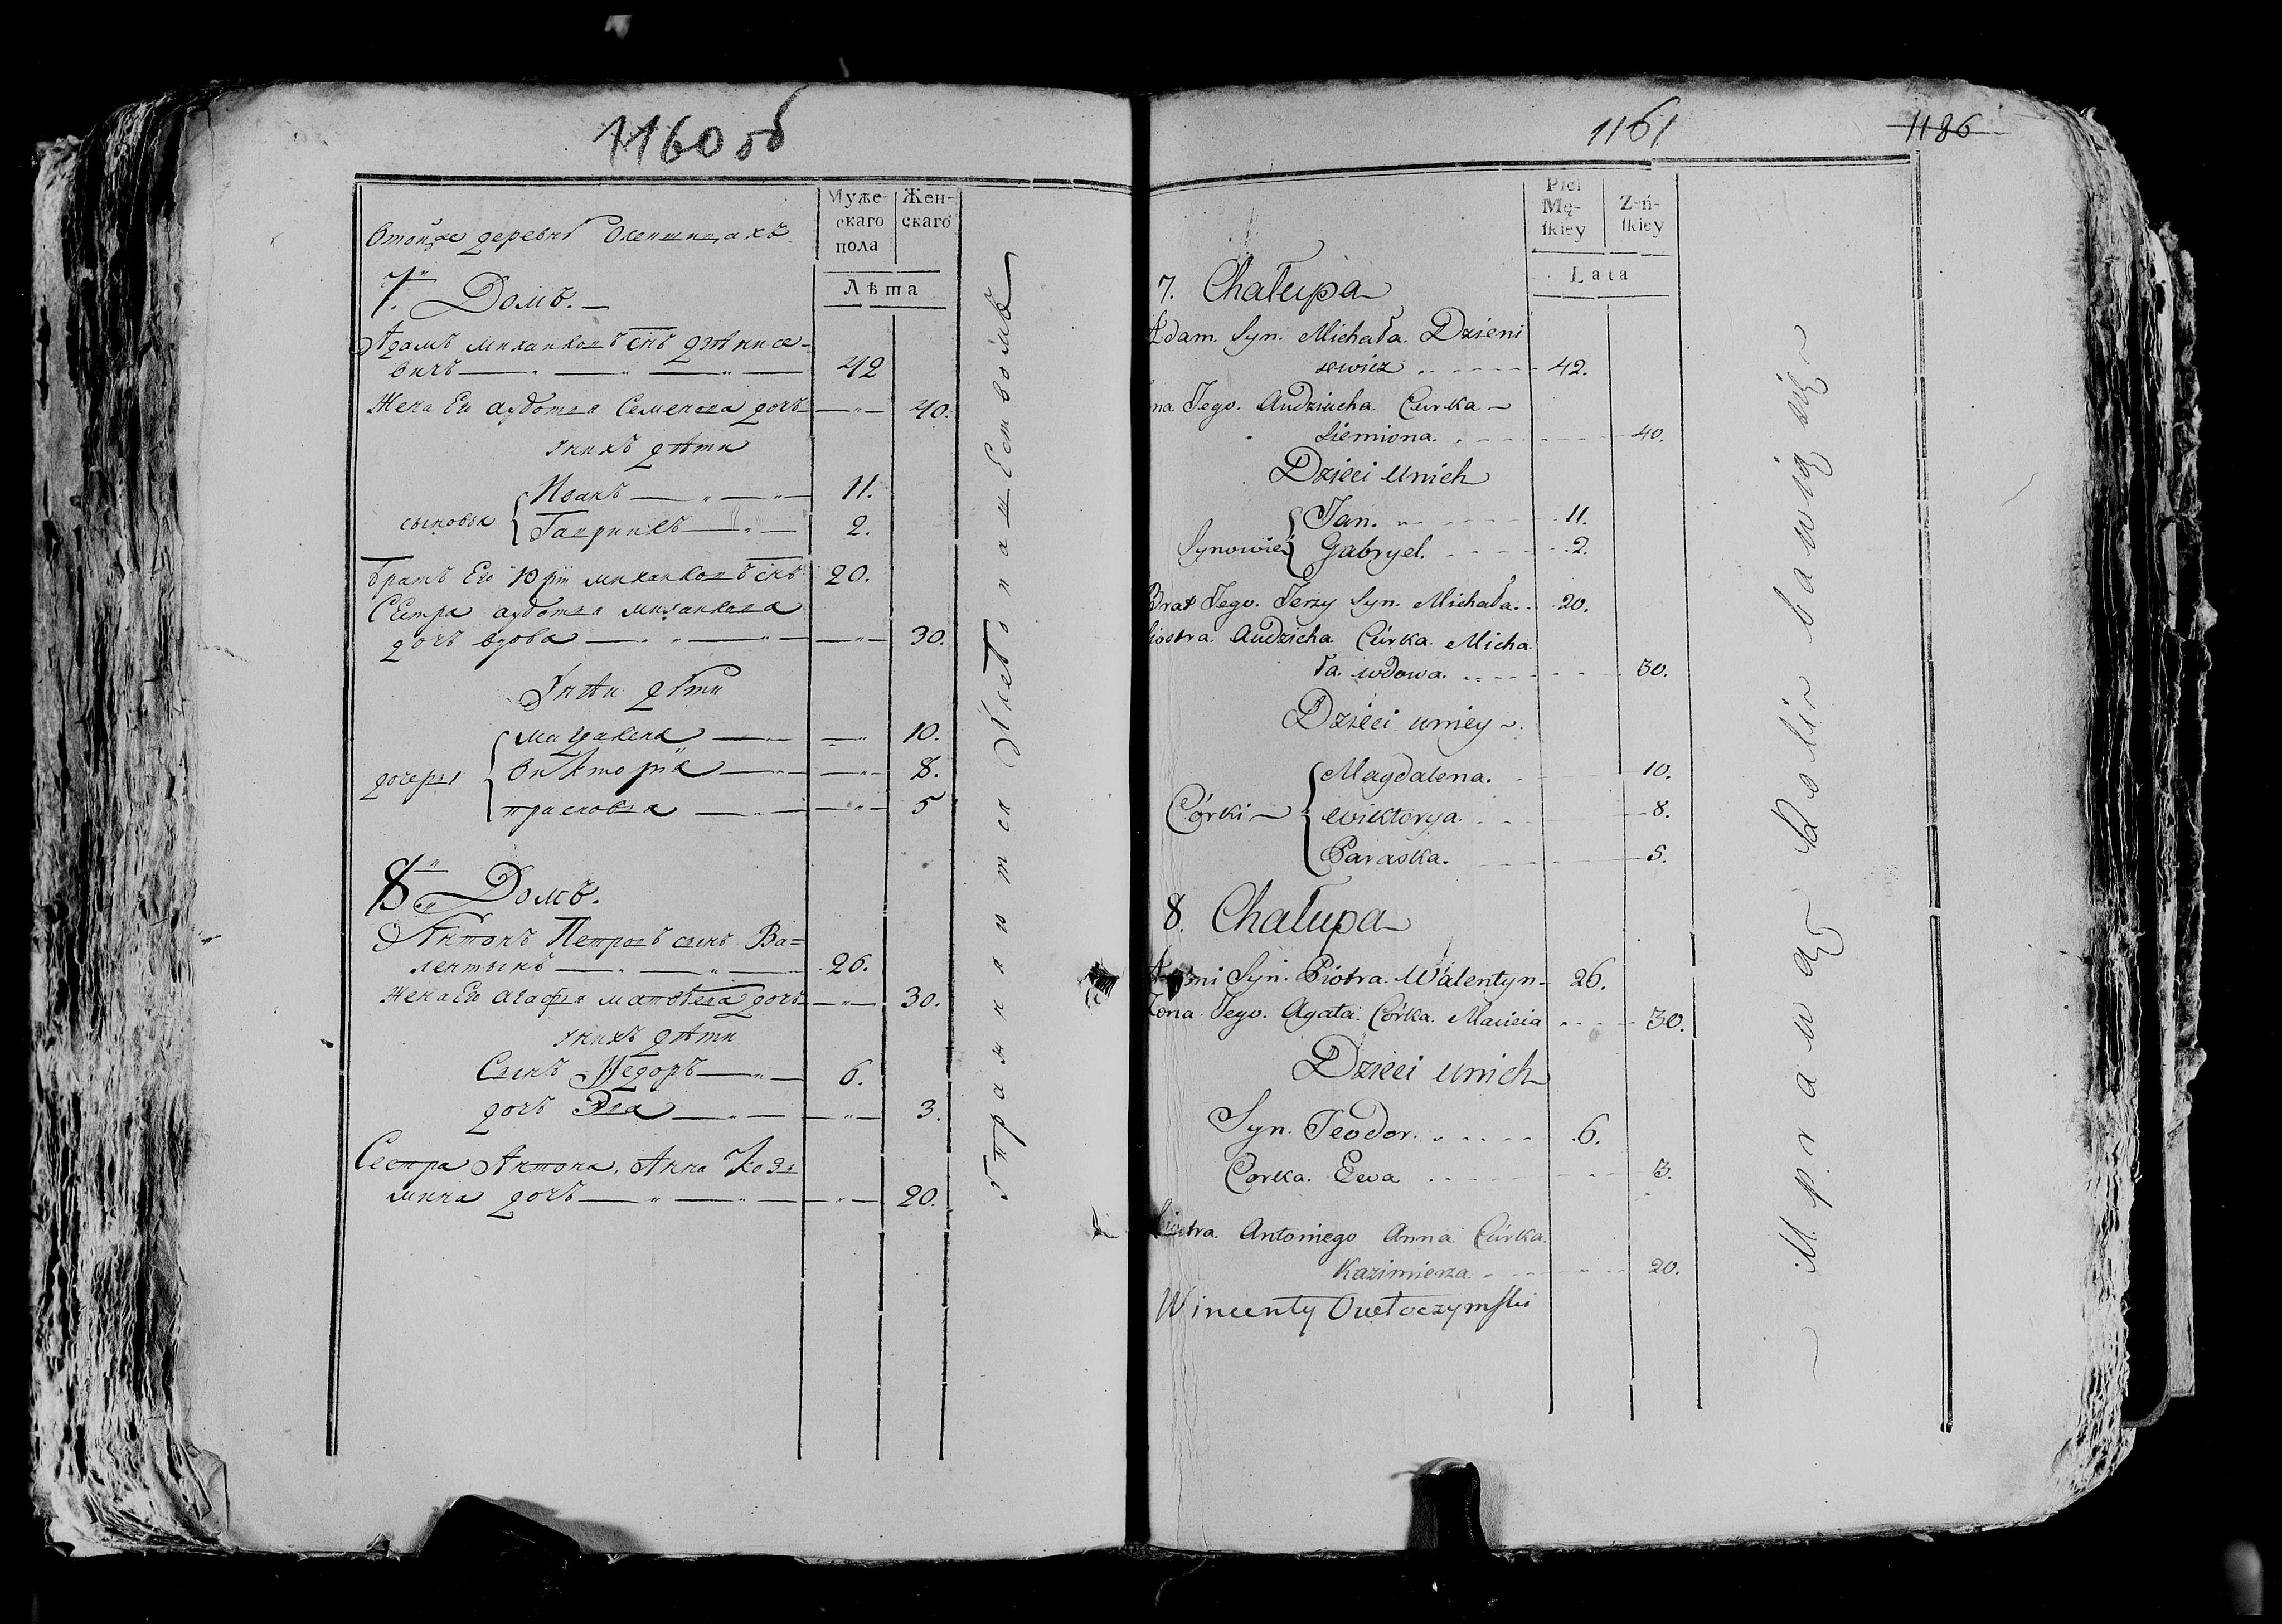 1160 об
Муже-
скаго
пола
Жен-
скаго
Втойже деревнѣ
Лѣта
7. Домъ.
Адамъ михайловъ снъ дзѣнисе-
вичъ 42
Жена Его аудотья Семенова дочь 40.
унихъ дѣти
сыновья { Иванъ 11.
Гаврiилъ 2.
братъ Его Юрiй михайловъ снъ 20.
Сестра аудотья михайлова
дочь вдова 30.
унѣи дѣти
дочеры { магдалена 10.
викторiя 8.
прасковья 5
8. Домъ.
Антонъ Петровъ сынъ Ва=
лентынъ 26.
жена Его агафья матвѣева дочь 30.
унихъ дѣти
Сынъ Ѳедоръ 6.
дочь Эва 3.
Сестра Антона, Анна Казы
мира дочь 20.
Упражняются хлѣбопашествомъ
1161
1186
Płci
Mę-
ſkiey
Zeń-
ſkiey
Lata
7. Chałupa
Adam. Syn. Michała. Dzieni
sewicz 42.
na Jego. Audziucha Curka
Siemiona. 40.
Dzieci unich
Synowie { Jan. 11.
Gabryel. 2.
Brat Jego. Jerzy Syn. Michała. 20.
Siostra. Audzicha Cúrka. Micha
ła. wdowa. 30.
Dzieci uniey
Córki { Magdalena. 10.
Wiktorya. 8.
Paraska. 5.
8. Chałupa
Syn. Piotra. Walentyn 26.
Zona. Jego. Agata. Córka. Macieia 30.
Dzieci unich
Syn. Teodor. 6.
Corka. Ewa 3.
Siostra Antoniego Anna Cúrka.
Kazimierza 20.
Wincenty
Uprawą Roli bawią się